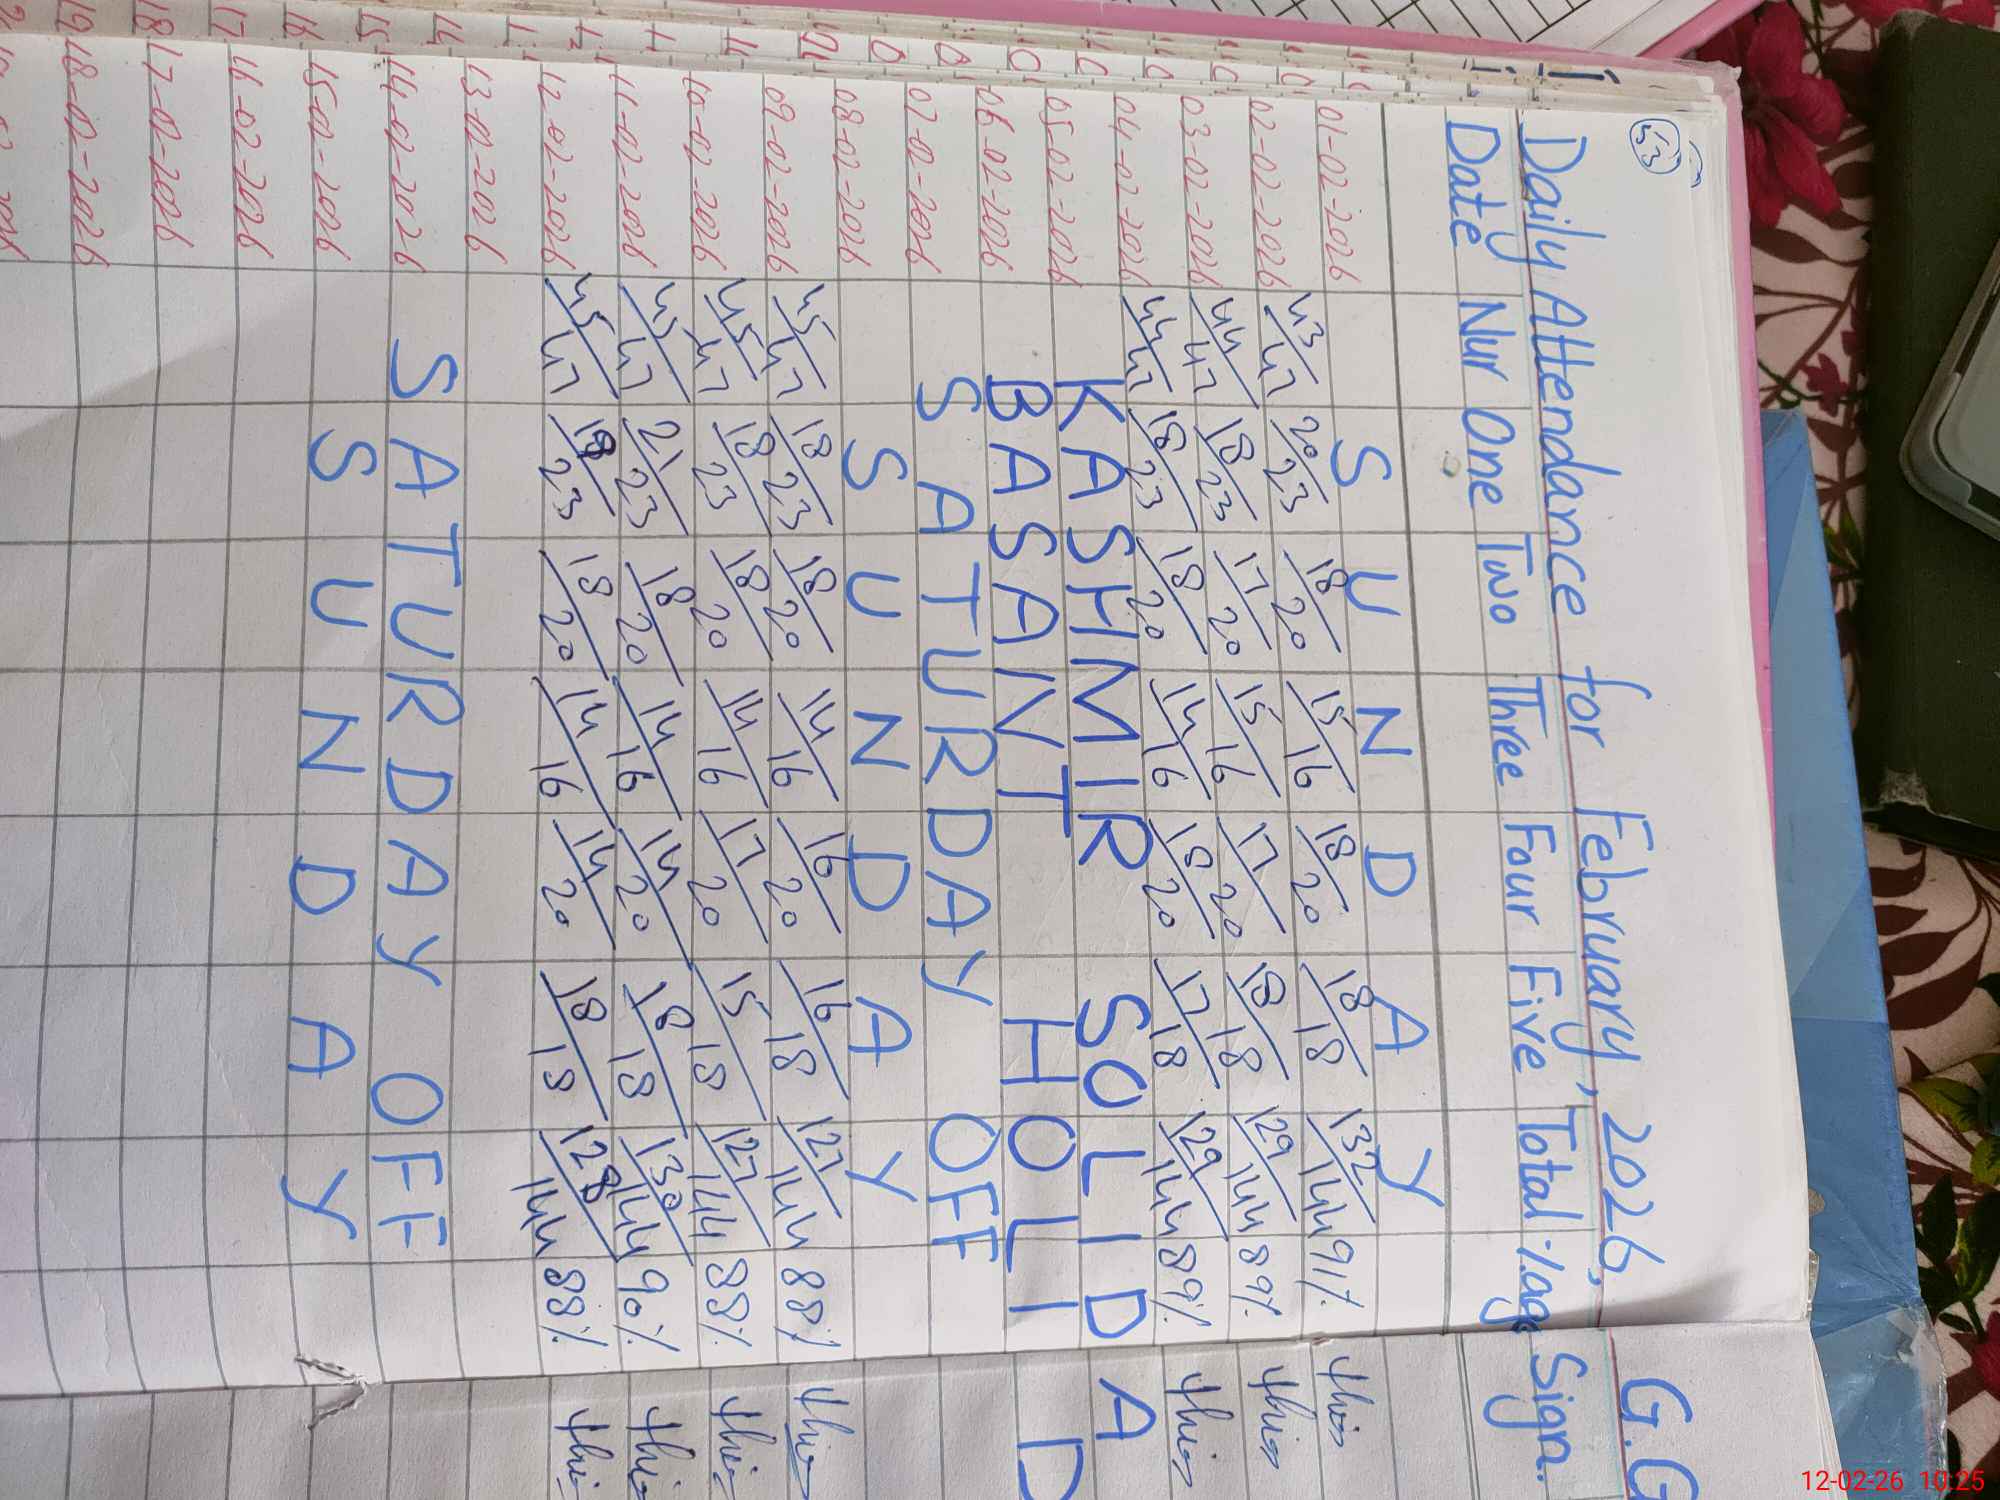 53
Daily Attendance for February, 2026. G.G
Date Nur One Two Three Four Five Total %age Sign.
01-02-2026 SUNDAY
02-02-2026 43/47 20/23 18/20 15/16 18/20 18/18 132/144 91%
03-02-2026 44/47 18/23 17/20 15/16 17/20 18/18 129/144 89%
04-02-2026 44/47 18/23 18/20 14/16 18/20 17/18 129/144 89%
05-02-2026 KASHMIR SOLIDA
06-02-2026 BASANT HOLID
07-02-2026 SATURDAY OFF
08-02-2026 SUNDAY
09-02-2026 45/47 18/23 18/20 14/16 16/20 16/18 127/144 88%
10-02-2026 45/47 18/23 18/20 14/16 17/20 15/18 127/144 88%
11-02-2026 45/47 21/23 18/20 14/16 14/20 18/18 130/144 90%
12-02-2026 45/47 /23 18/20 14/16 14/20 18/18 128/144 88%
13-02-2026
14-02-2026 SATURDAY OFF
15-02-2026 SUNDAY
16-02-2026
17-02-2026
18-02-2026
12-02-26 10:25